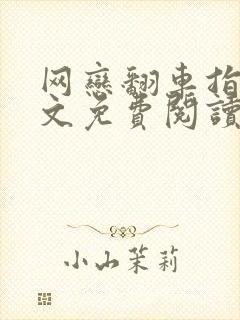 网戀翻車指
文免費閱讀
小山茉莉